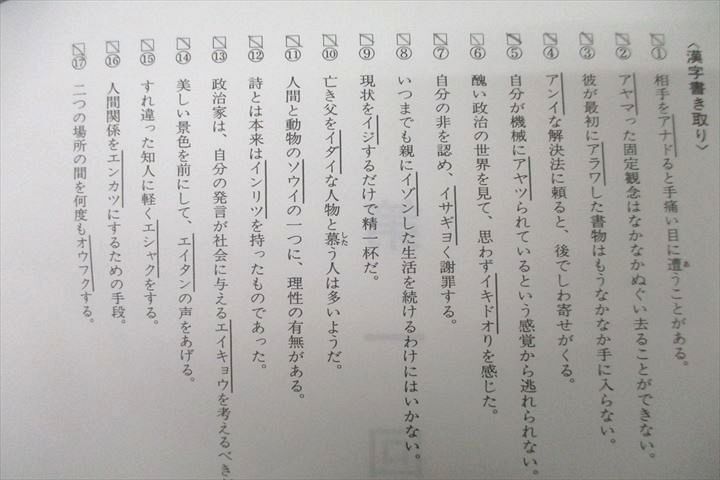 〈漢字書き取り〉
① 相手をアナドると手痛い目に遭うことがある。
② アヤマった固定観念はなかなかぬぐい去ることができない。
③ 彼が最初にアラワした書物はもうなかなか手に入らない。
④ アンイな解決法に頼ると、後でしわ寄せがくる。
⑤ 自分が機械にアヤツられているという感覚から逃れられない。
⑥ 醜い政治の世界を見て、思わずイキドオりを感じた。
⑦ 自分の非を認め、イサギヨく謝罪する。
⑧ いつまでも親にイゾンした生活を続けるわけにはいかない。
⑨ 現状をイジするだけで精一杯だ。
⑩ 亡き父をイダイな人物と慕う人は多いようだ。
⑪ 人間と動物のソウイの一つに、理性の有無がある。
⑫ 詩とは本来はインリツを持ったものであった。
⑬ 政治家は、自分の発言が社会に与えるエイキョウを考えるべき
⑭ 美しい景色を前にして、エイタンの声をあげる。
⑮ すれ違った知人に軽くエシャクをする。
⑯ 人間関係をエンカツにするための手段。
⑰ 二つの場所の間を何度もオウフクする。